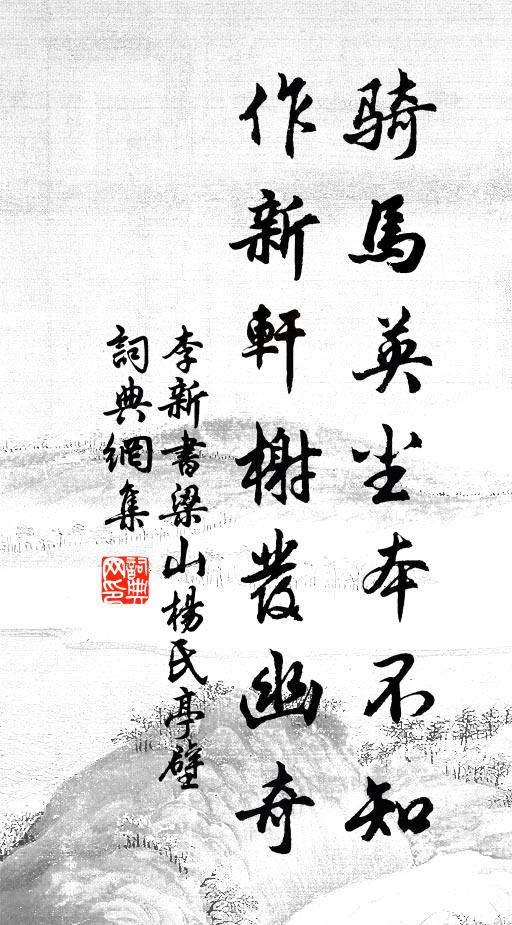 骑馬英尘本不知
作新軒榭發幽奇
李新書梁山楊氏亭壁
詞典網集
詞典網印